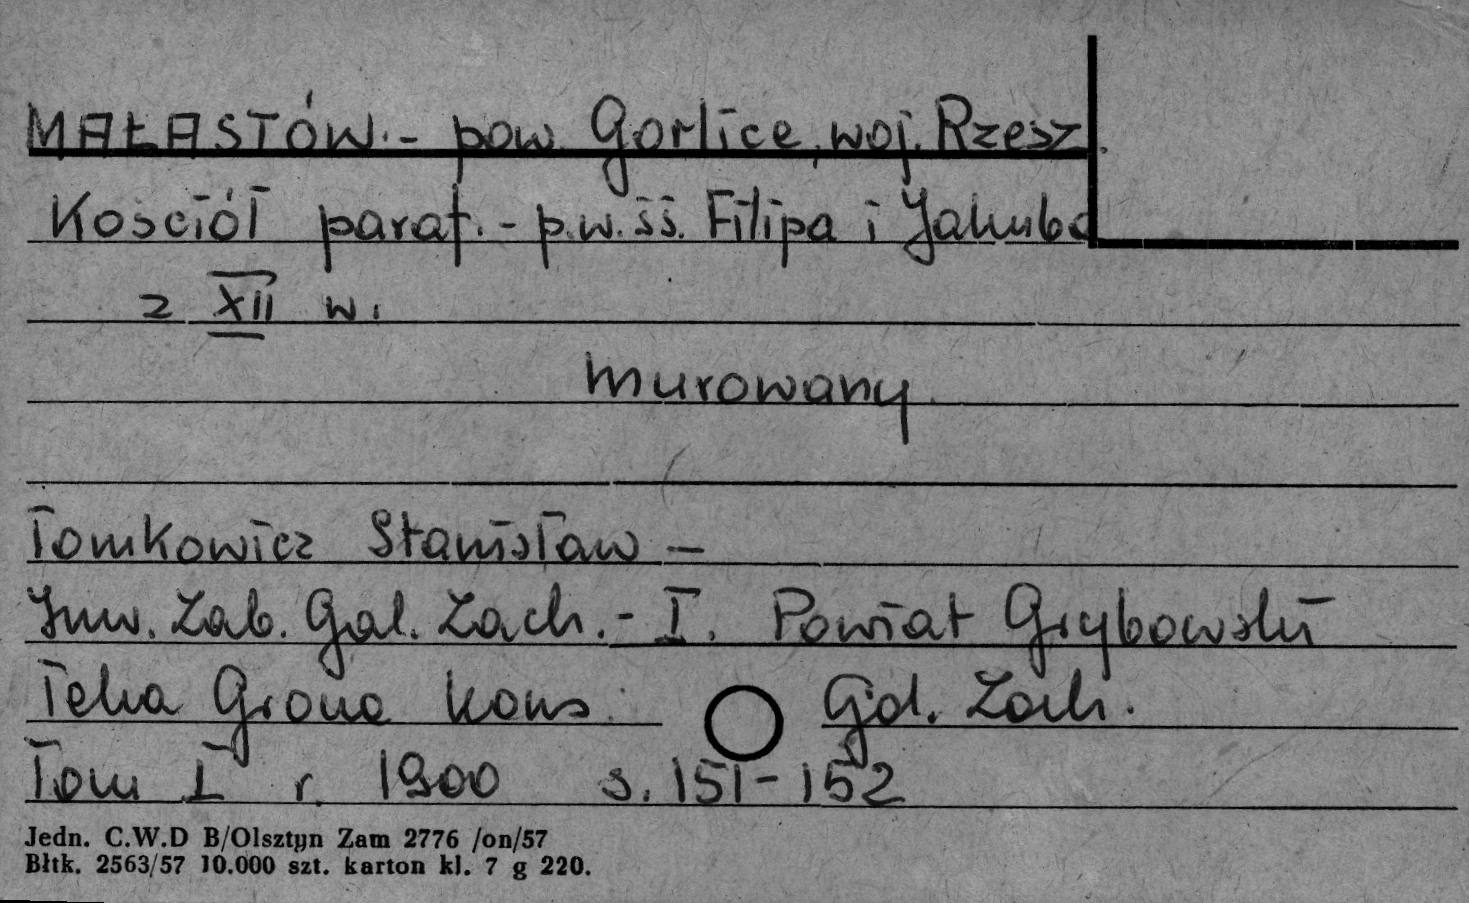 MAŁASTÓW. - pow. Gorlice, woj. Rzesz.
Kościół paraf. - p.w. śś. Filipa i Jakuba
z XII w.
murowany
Tomkowicz Stanisław -
Inw. Zab. Gal. Zach. - I. Powiat Grybowski
Teka Grona Kons. Gal. Zach.
Tom I r. 1900 s. 151-152
Jedn. C.W.D B/Olsztyn Zam 2776 /on/57
Bltk. 2563/57 10.000 szt. karton kl. 7 g 220.